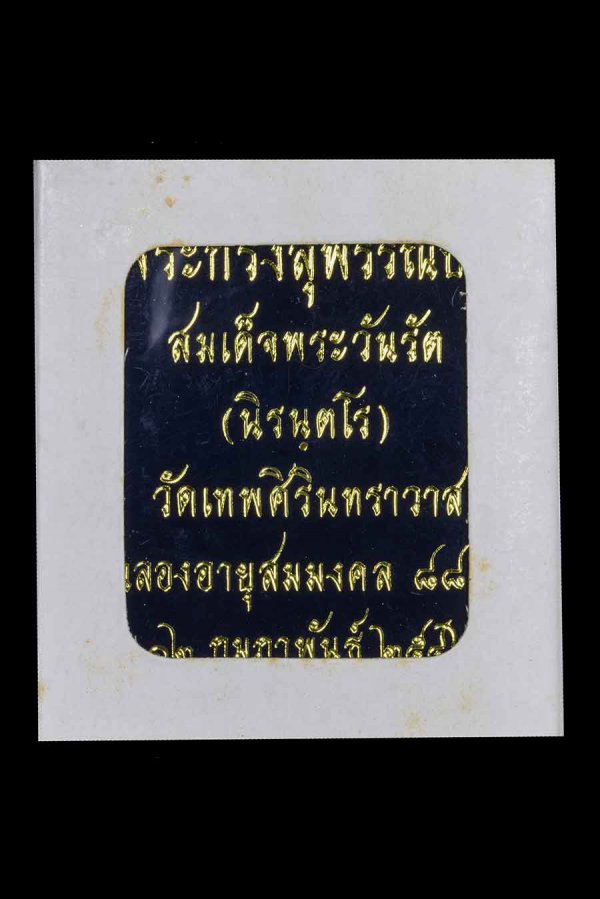 พระกริ่งสุพรรณบ
สมเด็จพระวันรัต
(นิรนฺตโร)
วัดเทพศิรินทราวาส
ฉลองอายุสมมงคล ๘๘
๑๒ กุมภาพันธ์